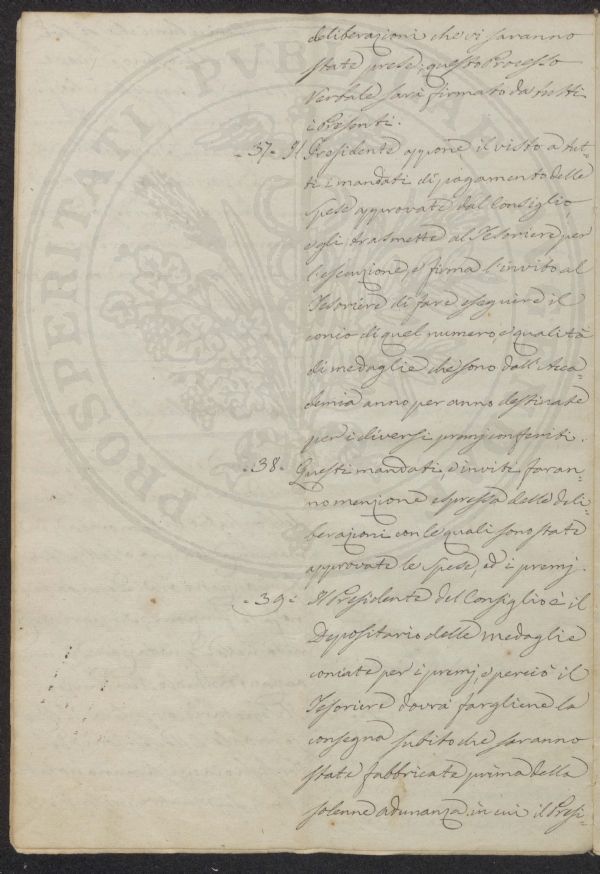 deliberazioni che vi saranno
state prese; questo Processo
Verbale sarà firmato da tutti
i Presenti.
- 37 - Il Presidente appone il visto a tut=
ti i mandati di pagamento delle
spese approvate dal Consiglio,
egli trasmette al Tesoriere per
l'esecuzione, e firma l'invito al
Tesoriere di fare eseguire il
conio di quel numero, e qualità
di medaglie che sono dall'Acca=
demia anno per anno destinate
per i diversi premj conferiti.
- 38 - Questi mandati, e inviti faran=
no menzione espressa delle deli=
berazioni con le quali sono state
approvate le spese, ed i premj.
- 39 - Il Presidente del Consiglio è il
Depositario delle medaglie
coniate per i premj, e perciò il
Tesoriere dovrà fargliene la
consegna subito che saranno
state fabbricate prima della
solenne adunanza, in cui il Presi=
PROSPERITATI PUBLICAE